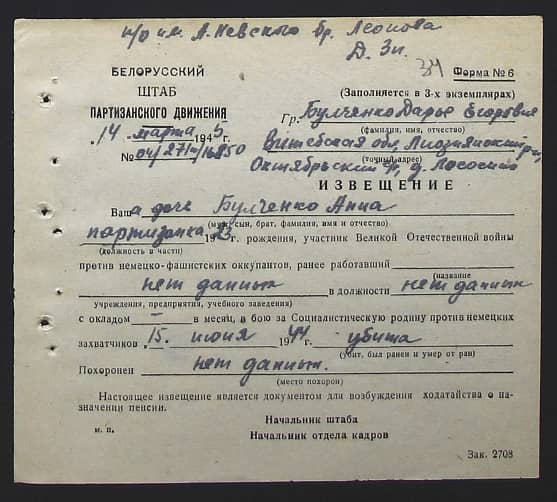 п/о им. А. Невского бр. Леонова
Д. Зп.
34
БЕЛОРУССКИЙ
ШТАБ
ПАРТИЗАНСКОГО ДВИЖЕНИЯ
„14 марта 1945 г.
№ 04/271
Форма № 6
(Заполняется в 3-х экземплярах)
Гр. Булченко Дарье Егоровне
(фамилия, имя, отчество)
Витебская обл. Лиозн
(точный адрес)
Октябрьский д.
ИЗВЕЩЕНИЕ
Ваша дочь Булченко Анна
(муж, сын, брат, фамилия, имя и отчество)
партизанка 1923 г. рождения, участник Великой Отечественной войны
(должность в части)
против немецко-фашистских оккупантов, ранее работавший
(название
нет данных в должности нет данных
учреждения, предприятия, учебного заведения)
с окладом — в месяц, в бою за Социалистическую родину против немецких
захватчиков 15. июня 1944 г. убита
(убит, был ранен и умер от ран)
Похоронен нет данных.
(место похорон)
Настоящее извещение является документом для возбуждения ходатайства о на-
значении пенсии.
Начальник штаба
м. п.
Начальник отдела кадров
Зак. 2708